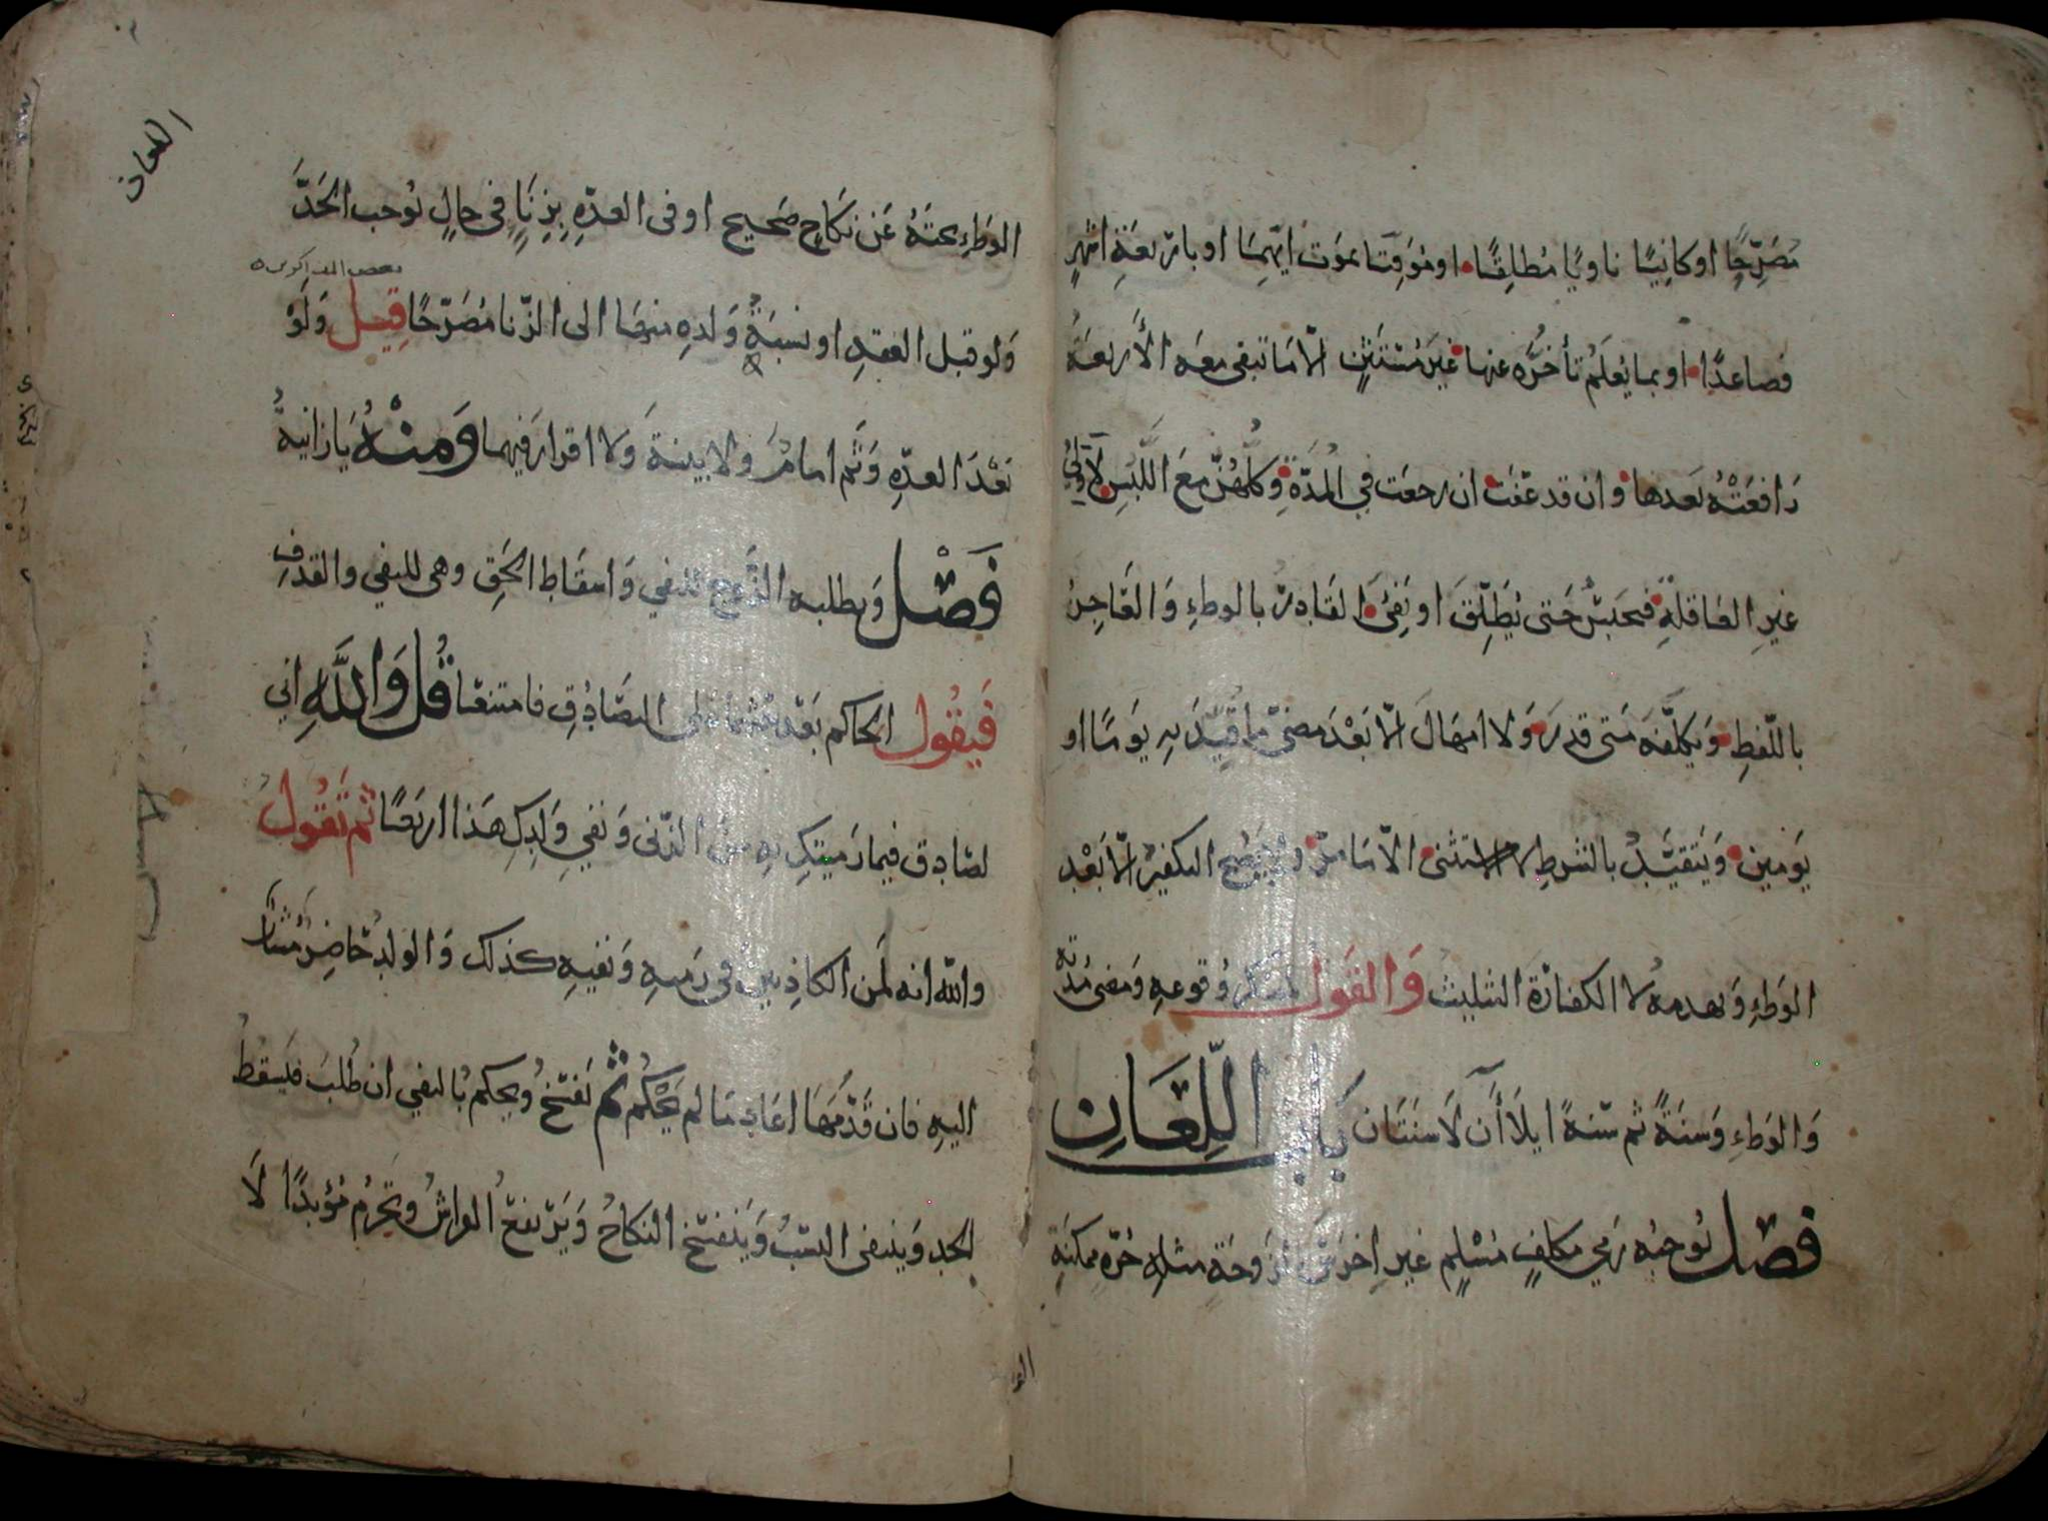 مُصَرِّحًا او كانِيًا ناويًا مُطلِقًا او مُوَقِتَا بموَت ايّهِمَا او باربعَةِ اشهرٍ
فصاعدًا او بما يُعلَمُ تأخّرُه عنها غيرَ مُستثنٍ الّا مَا تبقى معَه الأربعَةُ
رَافعَتْهُ بَعدها وان قد عَفَتْ ان رجعَت في المُدَّة وَكلّهُنّ معَ اللَّبَسِ لَا وَلِيُّ
غيرِ العَاقلَةِ فيُحبَسُ حَتى يُطَلِّقَ او يَفِئَ القَادرُ بالوطءِ وَالعَاجِزُ
باللّفظِ وَيكلّفُه مَتى قدرَ وَلا امهَالَ الّا بَعْدَ مضىّ مَا قُيِّدَ بِه يَومًا او
يَومَين وَيَتقيّدُ بالشرطِ لا الاستثنى الّا مَا مرّ وَلا يَصِحُ التكفيرُ الّا بَعْد
الوَطءِ وَيهدمهُ لا الكفارَة التثليث وَالقَول لمنكرِ وُقوعِهِ وَمضى مُدّتِه
وَالوَطءِ وَسنَةً ثم سَنةً ايلَاآنِ لَا سَنَتَان بَابُ اللِّعَانِ
فصْل يُوجبُه رَمي مكلفٍ مُسْلِمٍ غيرِ اخرَسَ لزَوجَةٍ مثلِهِ حُرّةٍ ممكنَةِ
الو
اللعان
الوَطءِ تحتَهُ عَن نكاحٍ صَحيح او فى العدّهِ بِزِنًا فى حالٍ يُوجب الحَدَّ
وَلو قبل العقدِ او نسبَةُ وَلدِهِ منهَا الى الزّنا مُصَرّحًا قِيل وَلَوْ
بَعْدَ العدّهِ وَثَم امامٌ وَلا بينةَ وَلا اقرارَ فيهما وَمنْهُ يَا زانيهُ
فَصْل وَيطلبه الزَّوج للنفي وَاسقَاط الحَق وهى للنفي والقذفِ
فَيقُول الحَاكم بَعْد حثّهمَا على التصَادُق فامتنعَا قُل وَاللَّهِ اني
لصَادِق فيما رَميتكِ بهِ من الزنى وَنفي وَلدِكِ هَذا اربَعًا ثم تَقُول
والله انه لمَن الكاذبين فى رَميهِ وَنفيِه كذلك وَالولَدُ حَاضِرٌ مُشَارٌ
اليهِ فان قَدّمَهَا اعَادَ مَا لم يَحْكُم ثُم يَفسَخُ وَيحكم بُالنفي ان طُلبَ فيَسقطُ
الحد وَينتفى النسَبُ وَيَنفسخ النكاحُ وَيَرتفعُ الفراشُ وَتحرُمُ مُؤبدًا لَا